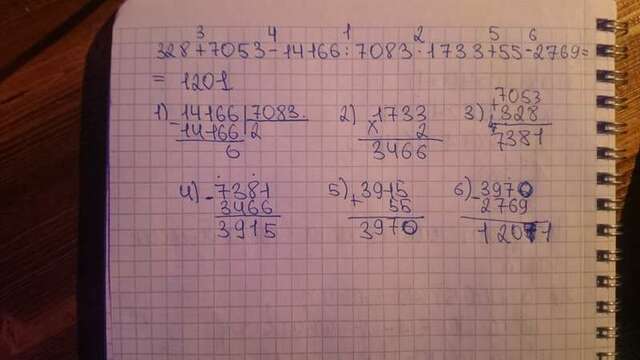 3 4 1 2 5 6
328+7053-14166:7083·1733+55-2769=
= 1201
1) 14166 | 7083
-14166 | 2
6
2) 1733
x 2
3466
3) 7053
+ 328
7381
4) -7381
3466
3915
5) 3915
+ 55
3970
6) -3970
2769
1201